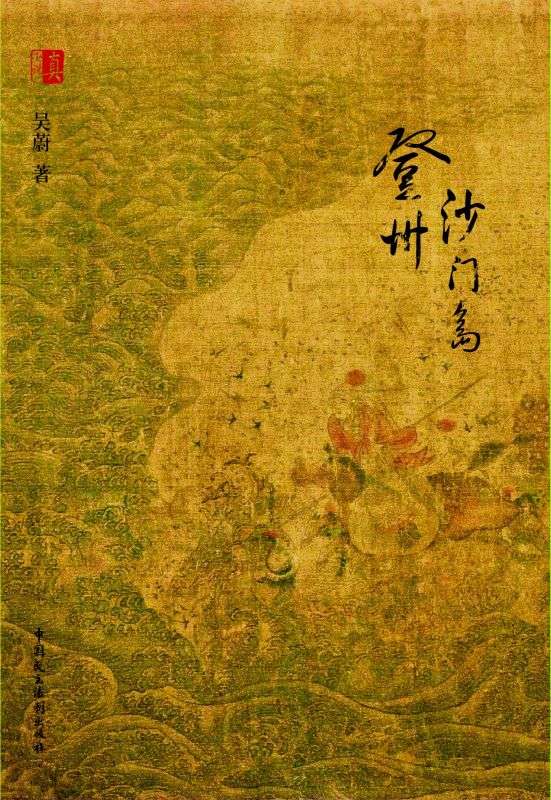 真
吴蔚 著
登州
沙门岛
中国民主法制出版社